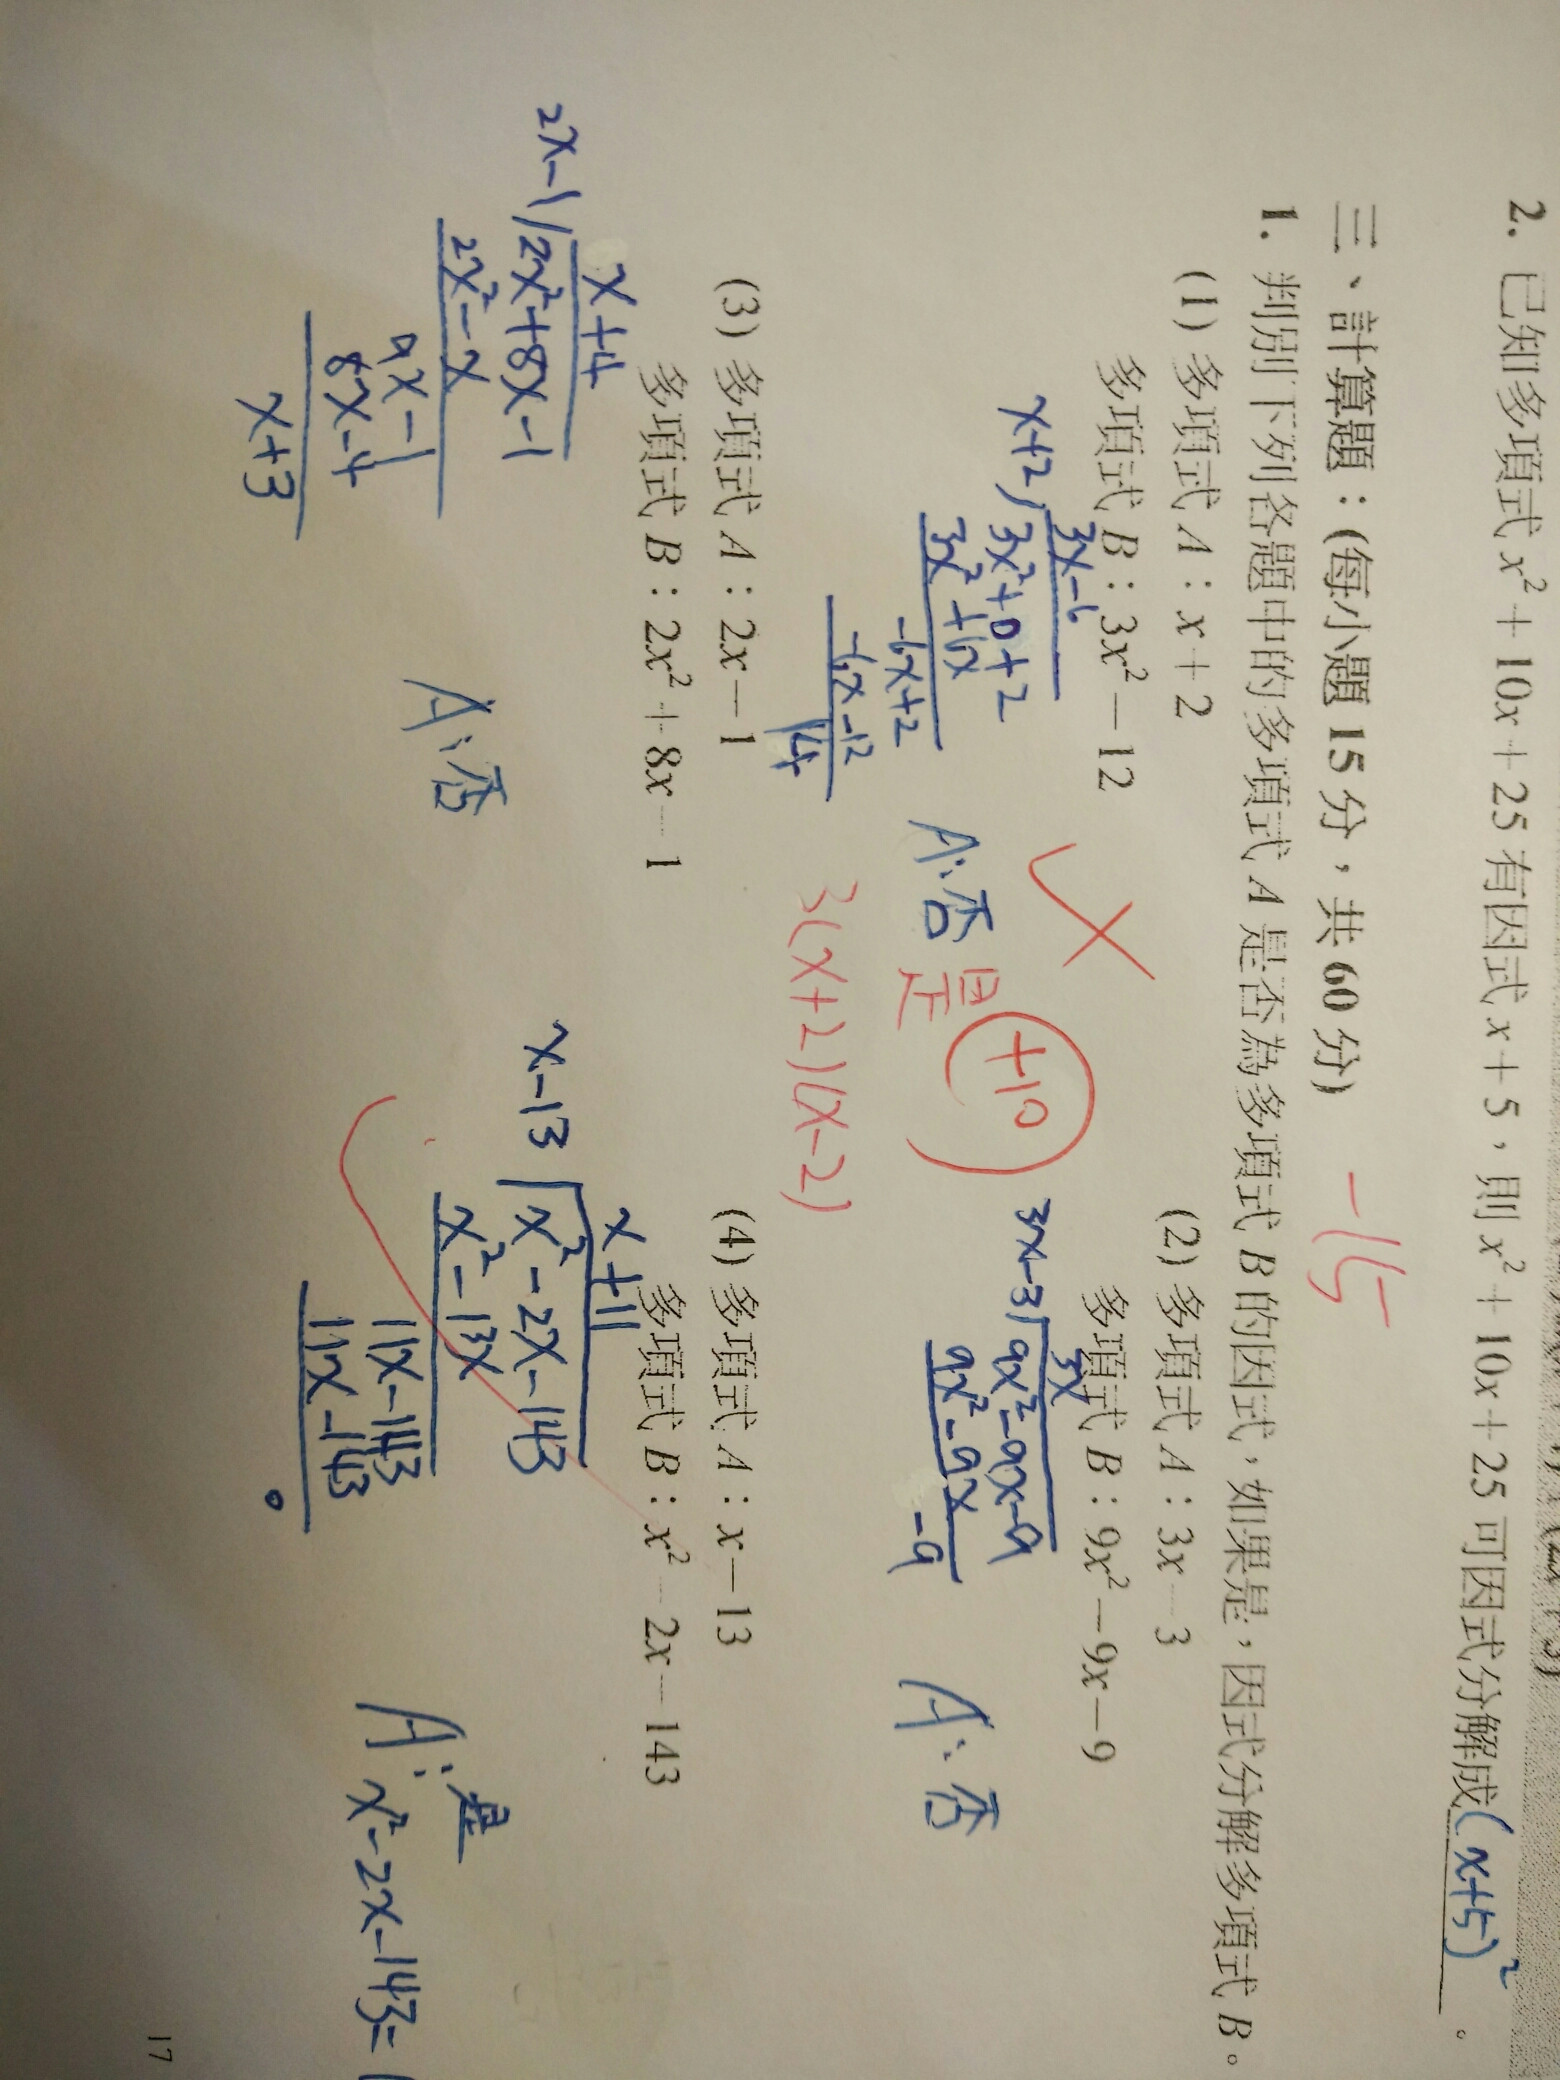 2. 已知多項式 x² + 10x + 25 有因式 x + 5，則 x² + 10x + 25 可因式分解成 (x+5)² 。
三、計算題：(每小題 15 分，共 60 分) -15
1. 判別下列各題中的多項式 A 是否為多項式 B 的因式，如果是，因式分解多項式 B。
(1) 多項式 A：x + 2
多項式 B：3x² － 12
3x-6
x+2 3x²+0+2
3x²+6x
-6x+2
-6x-12
14
A:否
是
+10
3(x+2)(x-2)
(2) 多項式 A：3x － 3
多項式 B：9x² － 9x － 9
3x
3x-3 9x²-9x-9
9x²-9x
-9
A:否
(3) 多項式 A：2x － 1
多項式 B：2x² + 8x － 1
x+4
2x-1 2x²+8x-1
2x²-x
9x-1
8x-4
x+3
A:否
(4) 多項式 A：x － 13
多項式 B：x² － 2x － 143
x+11
x-13 x²-2x-143
x²-13x
11x-143
11x-143
0
A:是
x²-2x-143=
17